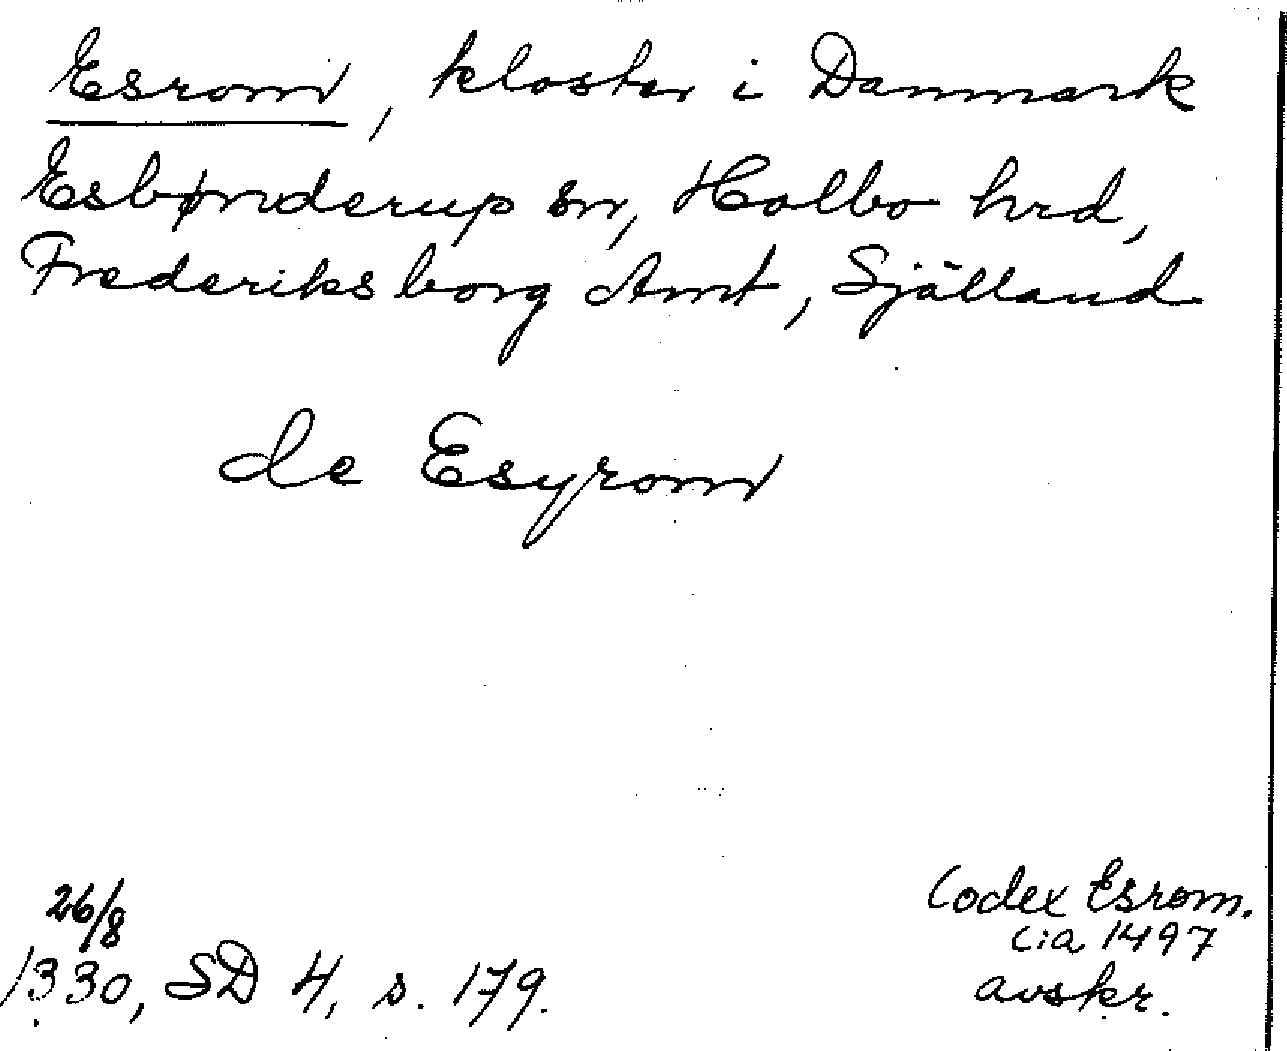 Esrom, kloster i Danmark
Esbønderup sn, Holbo hrd,
Frederiksborg Amt, Själland
de Esyrom
26/8
1330, SD 4, s. 179.
Codex Esrom.
c:a 1497
avskr.